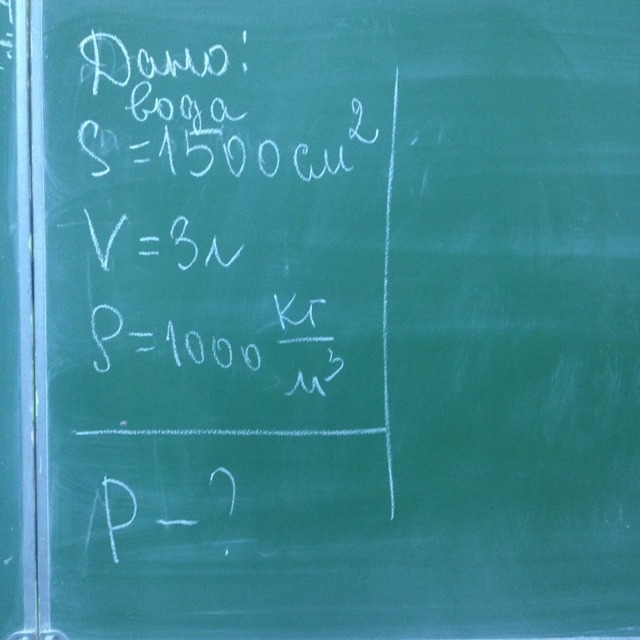 Дано:
вода
S = 1500 см²
V = 3л
ρ = 1000 кг/м³
p - ?